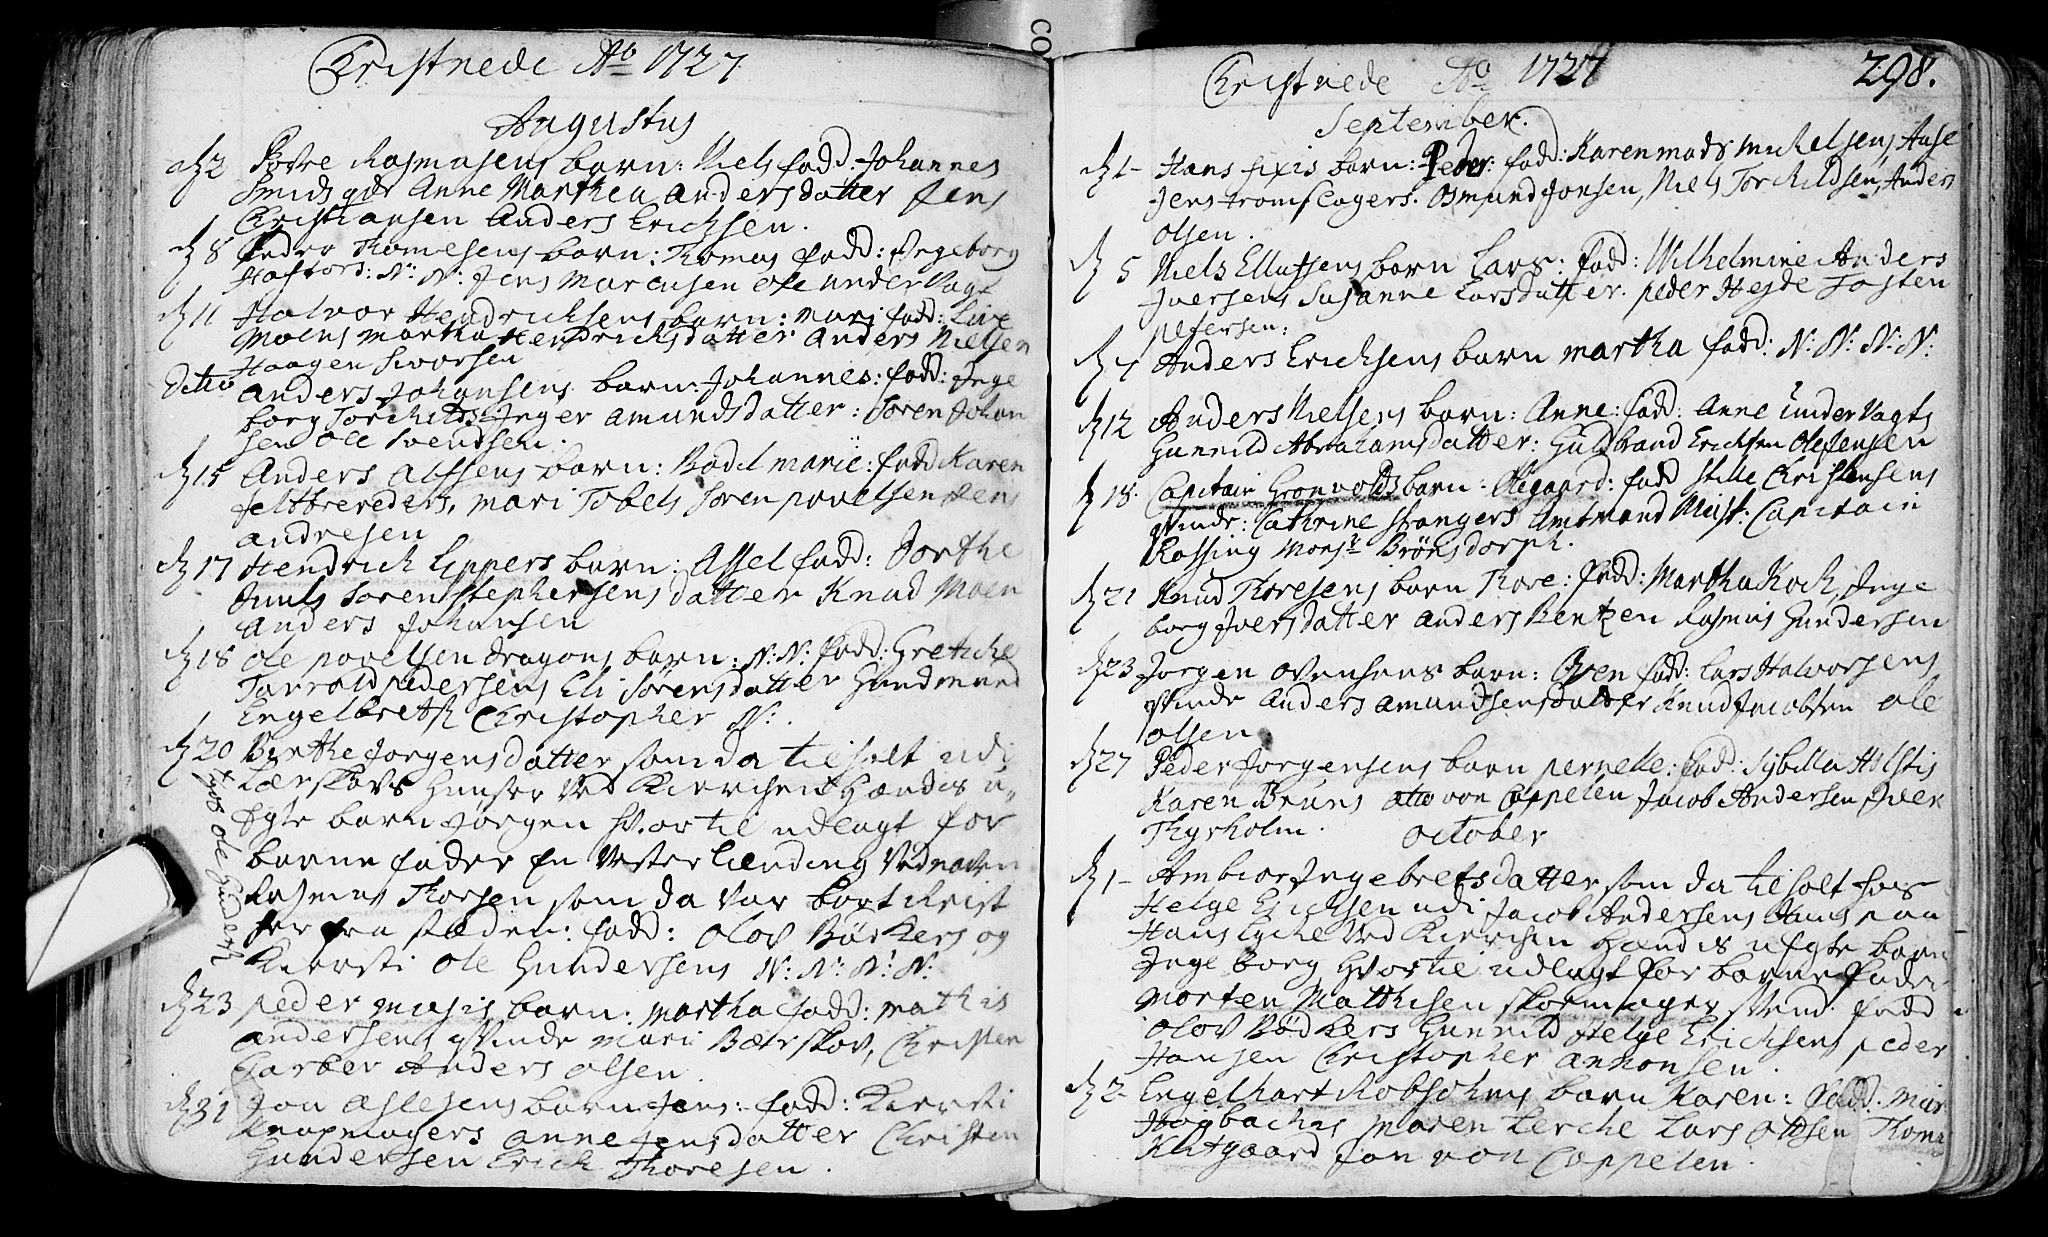 Christnede Ao 1727
Augustus
d 2 Rasmusens barn: Niels fadd: Johannes
Smids Anne Marthea Andersdatter Jens
Christiansen Anders Erichsen.
d 8 Peder Thomesens barn: Thomas fadd: Ingeborg
N: N: Jens Marcusen Ole UnderVagt
d 11 Halvor Hendrichsens barn: Mari fadd: Live
Moens Martha Hendrichsdatter Anders Nielsen
Haagen Sivorsen
Ditto Anders Johansens barn: Johannes: fadd: Inge
borg Torchilds Inger Amundsdatter: Soren Johan
sen Ole Svendsen.
d 15 Anders barn: Bodel marie: fadd Karen
Feltbereders, mari Tobels Soren povelsen Jens
Andresen
d 17 Hendrich Lippers barn: Assel fadd: Dorthe
Juuls Soren Stephensens datter Knud Moen
Anders Johansen
d 18 Ole povelsen dragons barn: N: N: fadd: Gretche
Tarrald pedersens Eli Sörensdatter Gundmund
Engelbretss Christopher N:.
d 20 Birthe Jorgensdatter som da til holt udi
Huuser Ved Kierchen Hendis u
Egte barn Jørgen Hvortil udlagt for
barne fader En Vesterlænding Ved naven
Rasmus Thorsen som da var bort Reist
her fra Staden: fadd: Olov Bödkers og
Kiersti Ole Gundersens N: N: N: N:
hos Ole Gunders
d 23 peder barn: Martha fadd: Mathis
Andersens qvinde Mari Bærskov, Christen
Garber Anders Olsen.
d 31 Jon Aslesens barn Jens: fadd: Kiersti
Knapmagers Anne Jensdatter Christen
Gundersen Erich Thoresen.
Christnede Ao 1727 298.
September.
d 1- Hans barn: Peder: fadd: Karen mads Michelsens,
Jens tromslagers. Osmund Jonsen, Niels Torchildsen, Anders
Olsen.
d 5 Niels Ellufsens barn Lars: fadd: Wilhelmine Anders
Iversens Susanne Larsdatter. peder Hejde Tosten
petersen:
d 7 Anders Erichsens barn martha fadd: N: N: N: N:
d 12 Anders Nielsens barn: Anne: fadd: Anne UnderVagts
Gunnild Abrahamsdatter: Guldbrand Erichsen Ole Jensen
d 18. Capitain Gronvolds barn: Ollegaard: fadd Stille Christensens
qvinde: Cathrine Stangers Amtmand Neist: Capitain
Rossing Monsr Brönsdorph.
d 21 Knud Thoresens barn Thore: fadd: Martha Koch, Inge
borg Iversdatter Anders Bentzen Rasmus Gundersen
d 23 Jorgen Ovensens barn: Oven fadd: Lars Halvorsens
qvinde Anders Amundsens datter Knud Jacobsen Ole
Olsen
d 27 Peder Jorgensens barn pernelle: fad: Sybilla Holstis
Karen Bruns Otto von Cappelen Jacob Andersen Iver
Thyrholm. October
d 1- Ambior Ingebretsdatter som da til holt hos
Helge Erichsen udi Jacob Andersens Huus paa
Hans Lyche Ved Kierchen Hendis uEgte barn
Ingeborg Hvortil udlagt for barnefader
Morten Matthisen skoemager Svend. fadd
Olov Bödkers Gunnild Helge Erichsens peder
Hansen Christopher Annonsen.
d 2- Engelhart Robschens barn Karen: fadd. Mar
Hogbachis Maren Lerche Lars Ottsen Thoma
Klitgaard Jan von Cappelen.